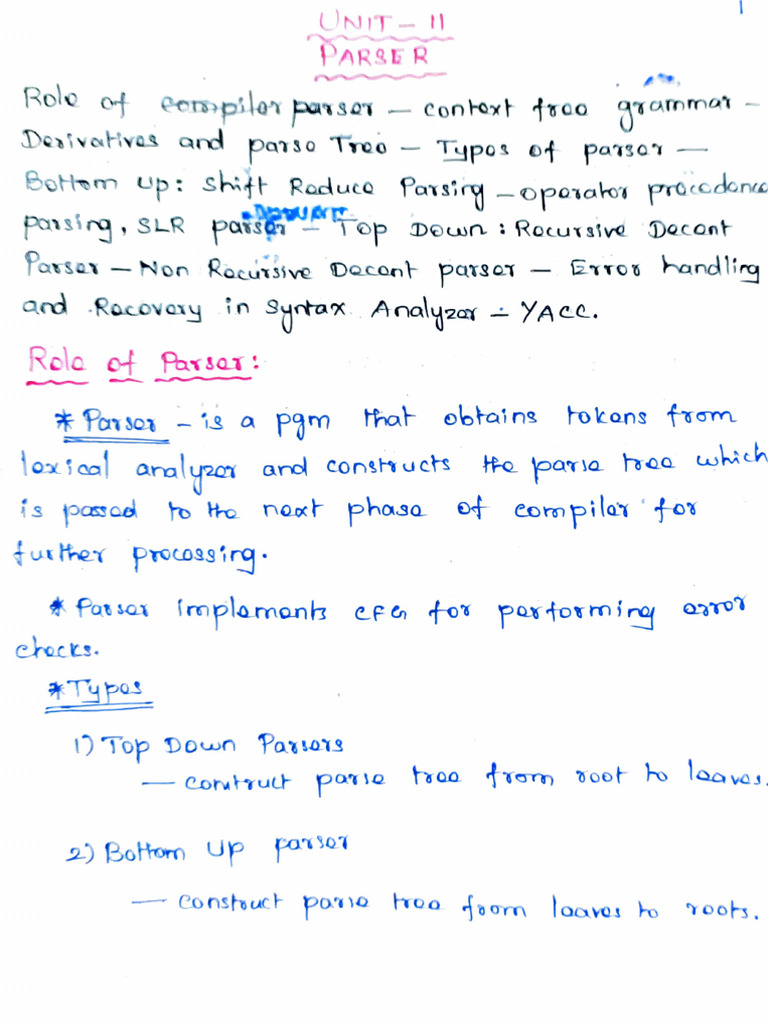 1
UNIT - II
PARSER
Role of compiler parser - context free grammar -
Derivatives and parse Tree - Types of parser -
Bottom up: Shift Reduce Parsing - operator precedence
parsing, SLR parser - Top Down: Recursive Decent
Parser - Non Recursive Decent parser - Error handling
and Recovery in Syntax Analyzer - YACC.
Role of Parser:
* Parser - is a pgm that obtains tokens from
lexical analyzer and constructs the parse tree which
is passed to the next phase of compiler for
further processing.
* Parser implements CFG for performing error
checks.
* Types
1) Top Down Parsers
- construct parse tree from root to leaves.
2) Bottom Up parser
- construct parse tree from leaves to roots.